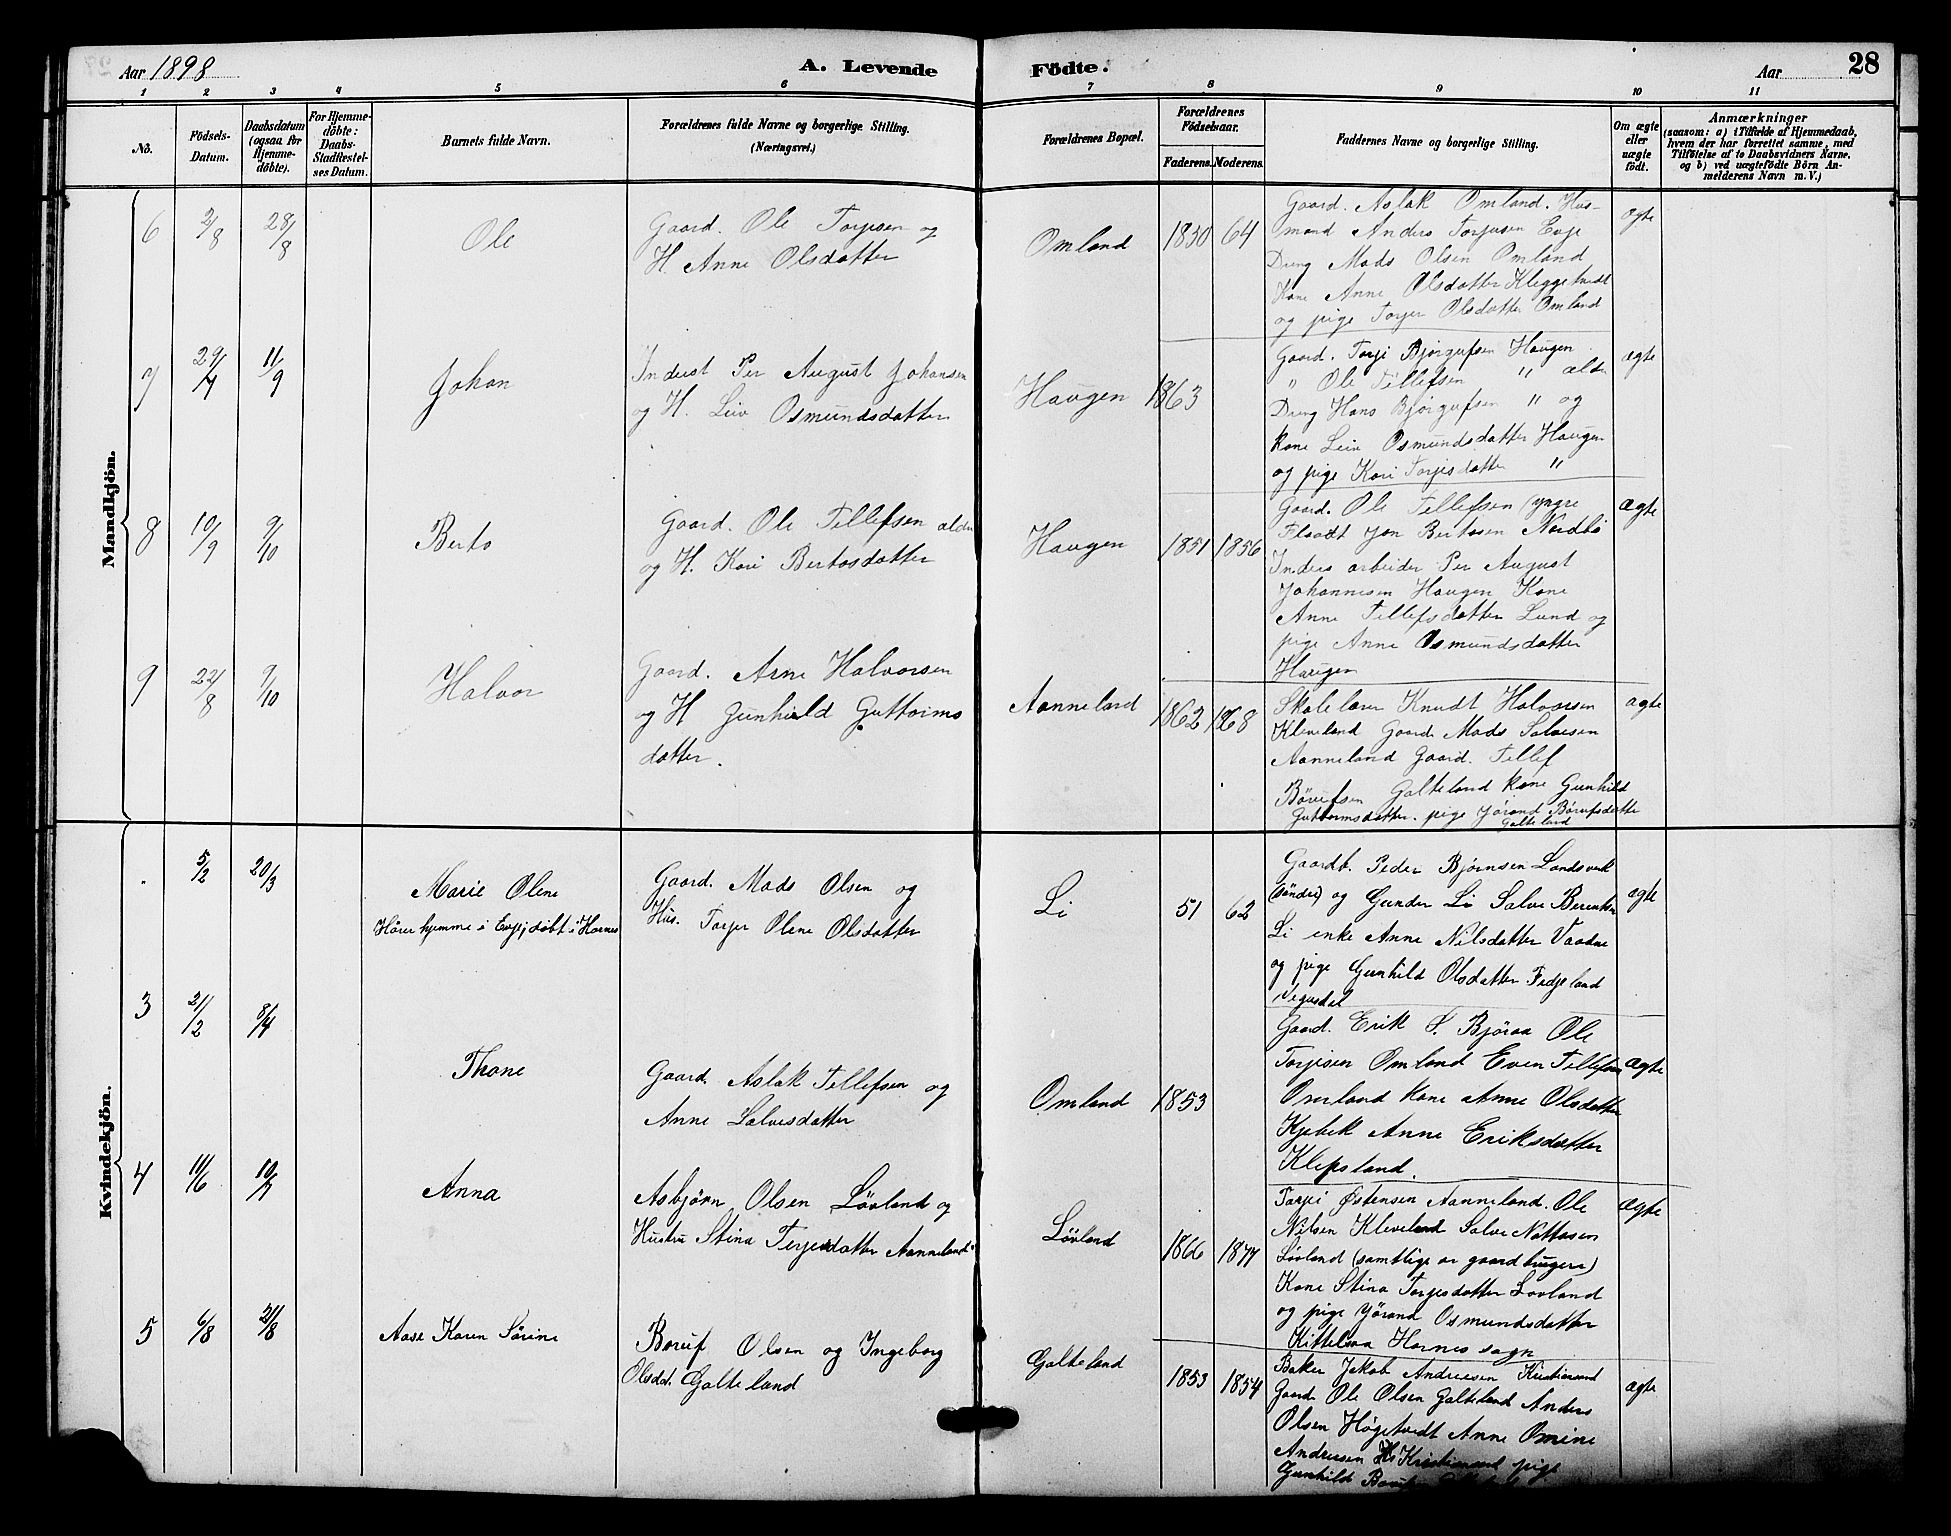 Aar 1898
A. Levende
Födte.
Aar
28
1 2 3 4 5 6 7 8 9 10 11
No.
Födsels-
Datum.
Daabsdatum
(ogsaa for
Hjemme-
döbte).
For Hjemme-
döbte:
Daabs-
Stadfæstel-
ses Datum.
Barnets fulde Navn.
Forældrenes fulde Navne og borgerlige Stilling.
(Næringsvei.)
Forældrenes Bopæl.
Forældrenes
Födselsaar.
Faderens. Moderens.
Faddernes Navne og borgerlige Stilling.
Om ægte
eller
uægte
födt.
Anmærkninger
(saasom: a) i Tilfælde af Hjemmedaab,
hvem der har forrettet samme, med
Tilföielse af to Daabsvidners Navne,
og b) ved uægtefödte Börn An-
melderens Navn m. V.)
Mandkjön.
6 2/8 28/8
Ole
Gaard. Ole Torjesen og
H. Anne Olsdatter
Omland
1830 64
Gaard. Aslak Omland. Hus-
mand Anders Torjusen Evje
Dreng Mads Olsen Omland
Kone Anne Olsdatter
og pige Torjer Olsdatter Omland
ægte
7 29/7 11/9
Johan
Inderst Per August Johansen
og H. Liv Osmundsdatter
Haugen
1863
Gaard. Torje Bjørgufsen Haugen
" Ole Tellefsen " ældre
Dreng Hans Bjørgufsen " og
kone Leiv Osmundsdatter Haugen
og pige Kari Torjesdatter "
ægte
8 10/9 9/10
Berto
Gaard. Ole Tellefsen ældre
og H. Kari Bertosdatter
Haugen
1851 1856
Gaard. Ole Tellefsen (yngre
Flaadt Jon Bertosen Nordbö
Inders arbeider Per August
Johannesen Haugen Kone
Anne Tellefsdatter Lund og
pige Anne Osmundsdatter
Haugen
Ægte
9 22/8 9/10
Halvor
Gaard. Arne Halvorsen
og H Gunhild Guttorms
datter.
Aanneland
1862 1868
Skolelærer Knudt Halvorsen
Kleveland Gaard. Mads Salvesen
Aanneland Gaard. Tellef
Börufsen Galteland kone Gunhild
Guttormsdatter. pige Jörand Börufsdatter
Galteland
ægte
Kvindekjön.
5/2 20/3
Marie Olene
Hører hjemme i Evje; døbt i Hornes
Gaard. Mads Olsen og
Hus. Torjer Olene Olsdatter
Li
51 62
Gaardb. Peder Bjørnsen Landsverk
(søndre) og Gunder Li Salve Berentsen
Li enke Anne Nilsdatter Vaadne
og pige Gunhild Olsdatter Fedjeland
Vegusdal
ægte
3 21/2 8/4
Thone
Gaard. Aslak Tellefsen og
Anne Salvesdatter
Omland
1853
Gaard. Erik S. Björaa Ole
Torjesen Omland Even Tellefsen
Omland kone Anne Olsdatter
Kjebek Anne Eriksdatter
Klepsland.
Ægte
4 11/6 10/7
Anna
Asbjörn Olsen Lövland og
Hustru Stina Terjesdatter Aanneland
Lövland
1866 1877
Torjei Østensen Aanneland. Ole
Nilsen Kleveland Salve Nottosen
Lövland (samtlige er gaardbrugere)
Kone Stina Torjesdatter Lovland
og pige Jörand Osmundsdatter
Kittelsaa Hornes sogn
Ægte
5 6/8 21/8
Aase Karen Sörine
Boruf Olsen og Ingeborg
Olsdt. Galteland
Galteland
1853 1854
Baker Jakob Andreesen Kristiansand
Gaard. Ole Olsen Galteland Anders
Olsen Högetvedt Anne Omine
Andreesen Kristiansand pige
Gunhild
ægte